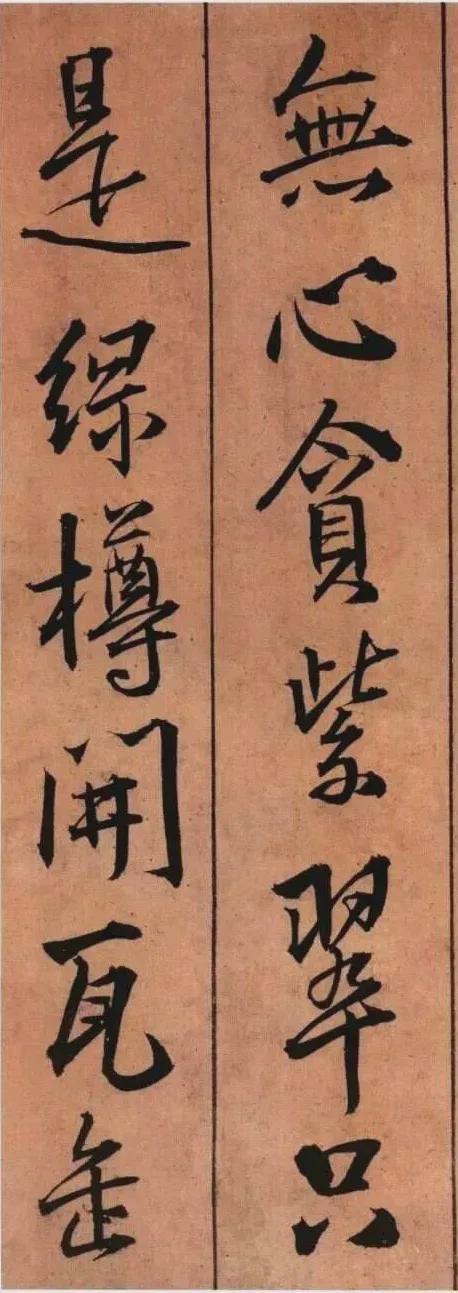 無心貪紫翠只
是緑樽開瓦缶